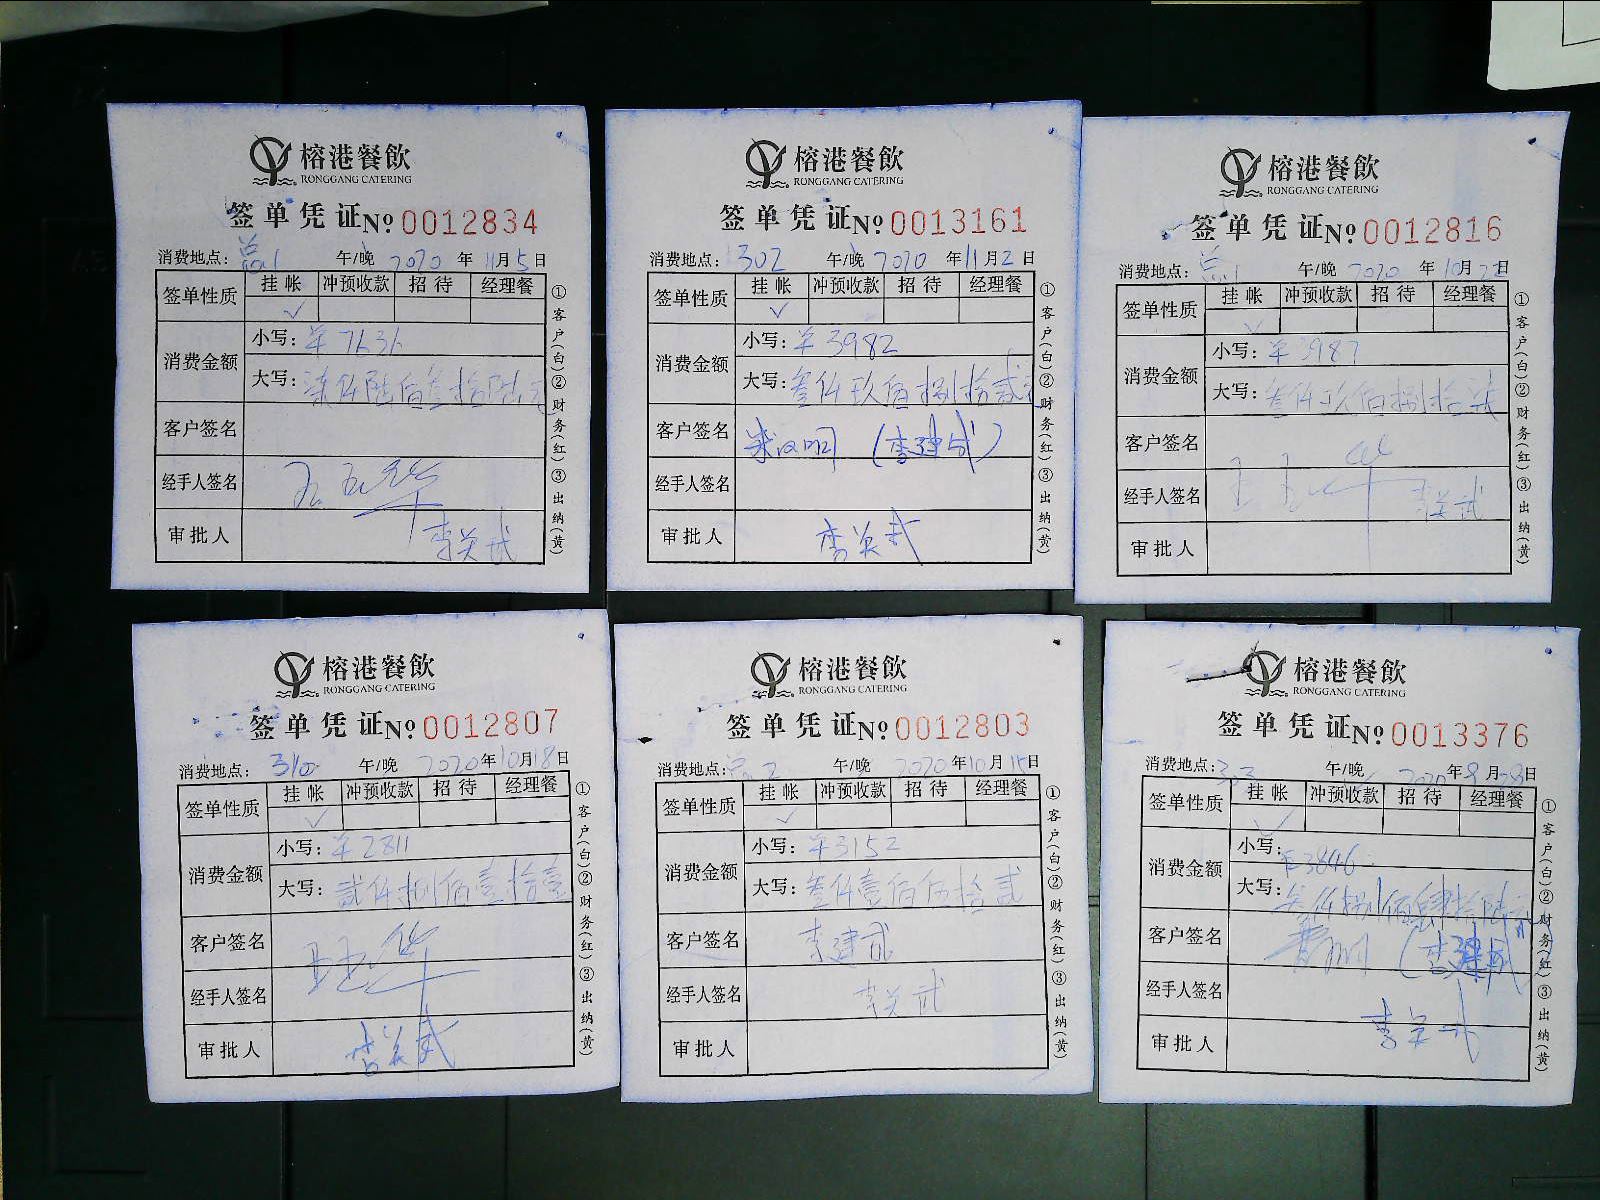 榕港餐飲
RONGGANG CATERING
签单凭证 № 0012834
消费地点: 午/晚 2020 年 11 月 5 日
签单性质 挂帐 冲预收款 招待 经理餐
✓
消费金额 小写: ¥ 7636
大写: 柒仟陆佰叁拾陆元
客户签名
经手人签名
审批人
①客户(白)②财务(红)③出纳(黄)
榕港餐飲
RONGGANG CATERING
签单凭证 № 0013161
消费地点: 302 午/晚 2020 年 11 月 2 日
签单性质 挂帐 冲预收款 招待 经理餐
✓
消费金额 小写: ¥ 3982
大写: 叁仟玖佰捌拾贰元
客户签名 (李建成)
经手人签名
审批人
①客户(白)②财务(红)③出纳(黄)
榕港餐飲
RONGGANG CATERING
签单凭证 № 0012816
消费地点: 午/晚 2020 年 10 月 22 日
签单性质 挂帐 冲预收款 招待 经理餐
✓
消费金额 小写: ¥ 3987
大写: 叁仟玖佰捌拾柒
客户签名
经手人签名
审批人
①客户(白)②财务(红)③出纳(黄)
榕港餐飲
RONGGANG CATERING
签单凭证 № 0012807
消费地点: 310 午/晚 2020 年 10 月 18 日
签单性质 挂帐 冲预收款 招待 经理餐
✓
消费金额 小写: ¥ 2811
大写: 贰仟捌佰壹拾壹
客户签名
经手人签名
审批人
①客户(白)②财务(红)③出纳(黄)
榕港餐飲
RONGGANG CATERING
签单凭证 № 0012803
消费地点: 午/晚 2020 年 10 月 15 日
签单性质 挂帐 冲预收款 招待 经理餐
✓
消费金额 小写: ¥ 3152
大写: 叁仟壹佰伍拾贰
客户签名 李建成
经手人签名
审批人
①客户(白)②财务(红)③出纳(黄)
榕港餐飲
RONGGANG CATERING
签单凭证 № 0013376
消费地点: 303 午/晚 2020 年 8 月 28 日
签单性质 挂帐 冲预收款 招待 经理餐
✓
消费金额 小写: ¥ 3846
大写: 叁仟捌佰肆拾陆元
客户签名 (李建成)
经手人签名
审批人
①客户(白)②财务(红)③出纳(黄)